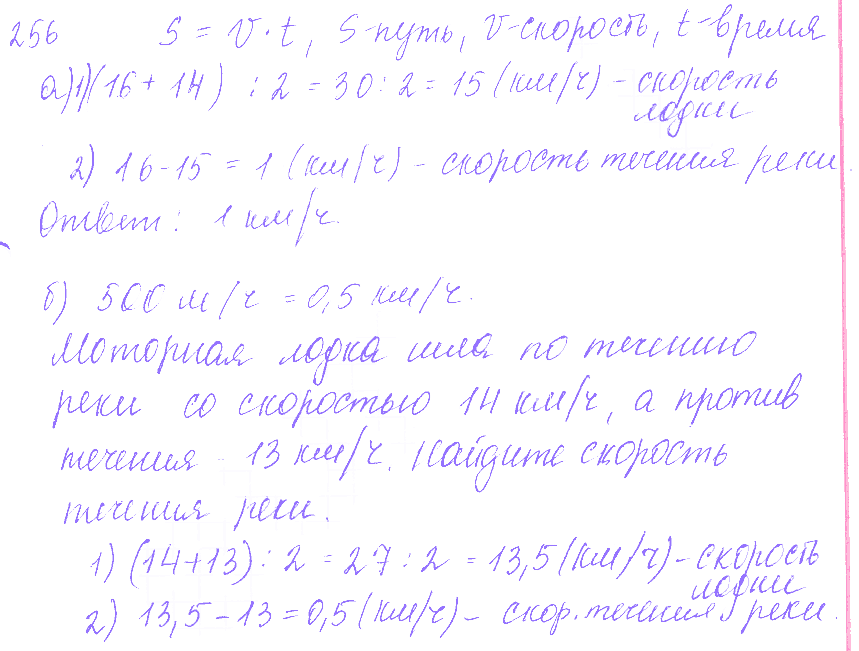 256 S = V · t, S-путь, V-скорость, t-время
а) 1) (16 + 14) : 2 = 30 : 2 = 15 (км/ч) - скорость
лодки
2) 16 - 15 = 1 (км/ч) - скорость течения реки.
Ответ: 1 км/ч.
б) 500 м/ч = 0,5 км/ч.
Моторная лодка шла по течению
реки со скоростью 14 км/ч, а против
течения - 13 км/ч. Найдите скорость
течения реки.
1) (14+13) : 2 = 27 : 2 = 13,5 (км/ч) - скорость
лодки
2) 13,5 - 13 = 0,5 (км/ч) - скор. течения реки.